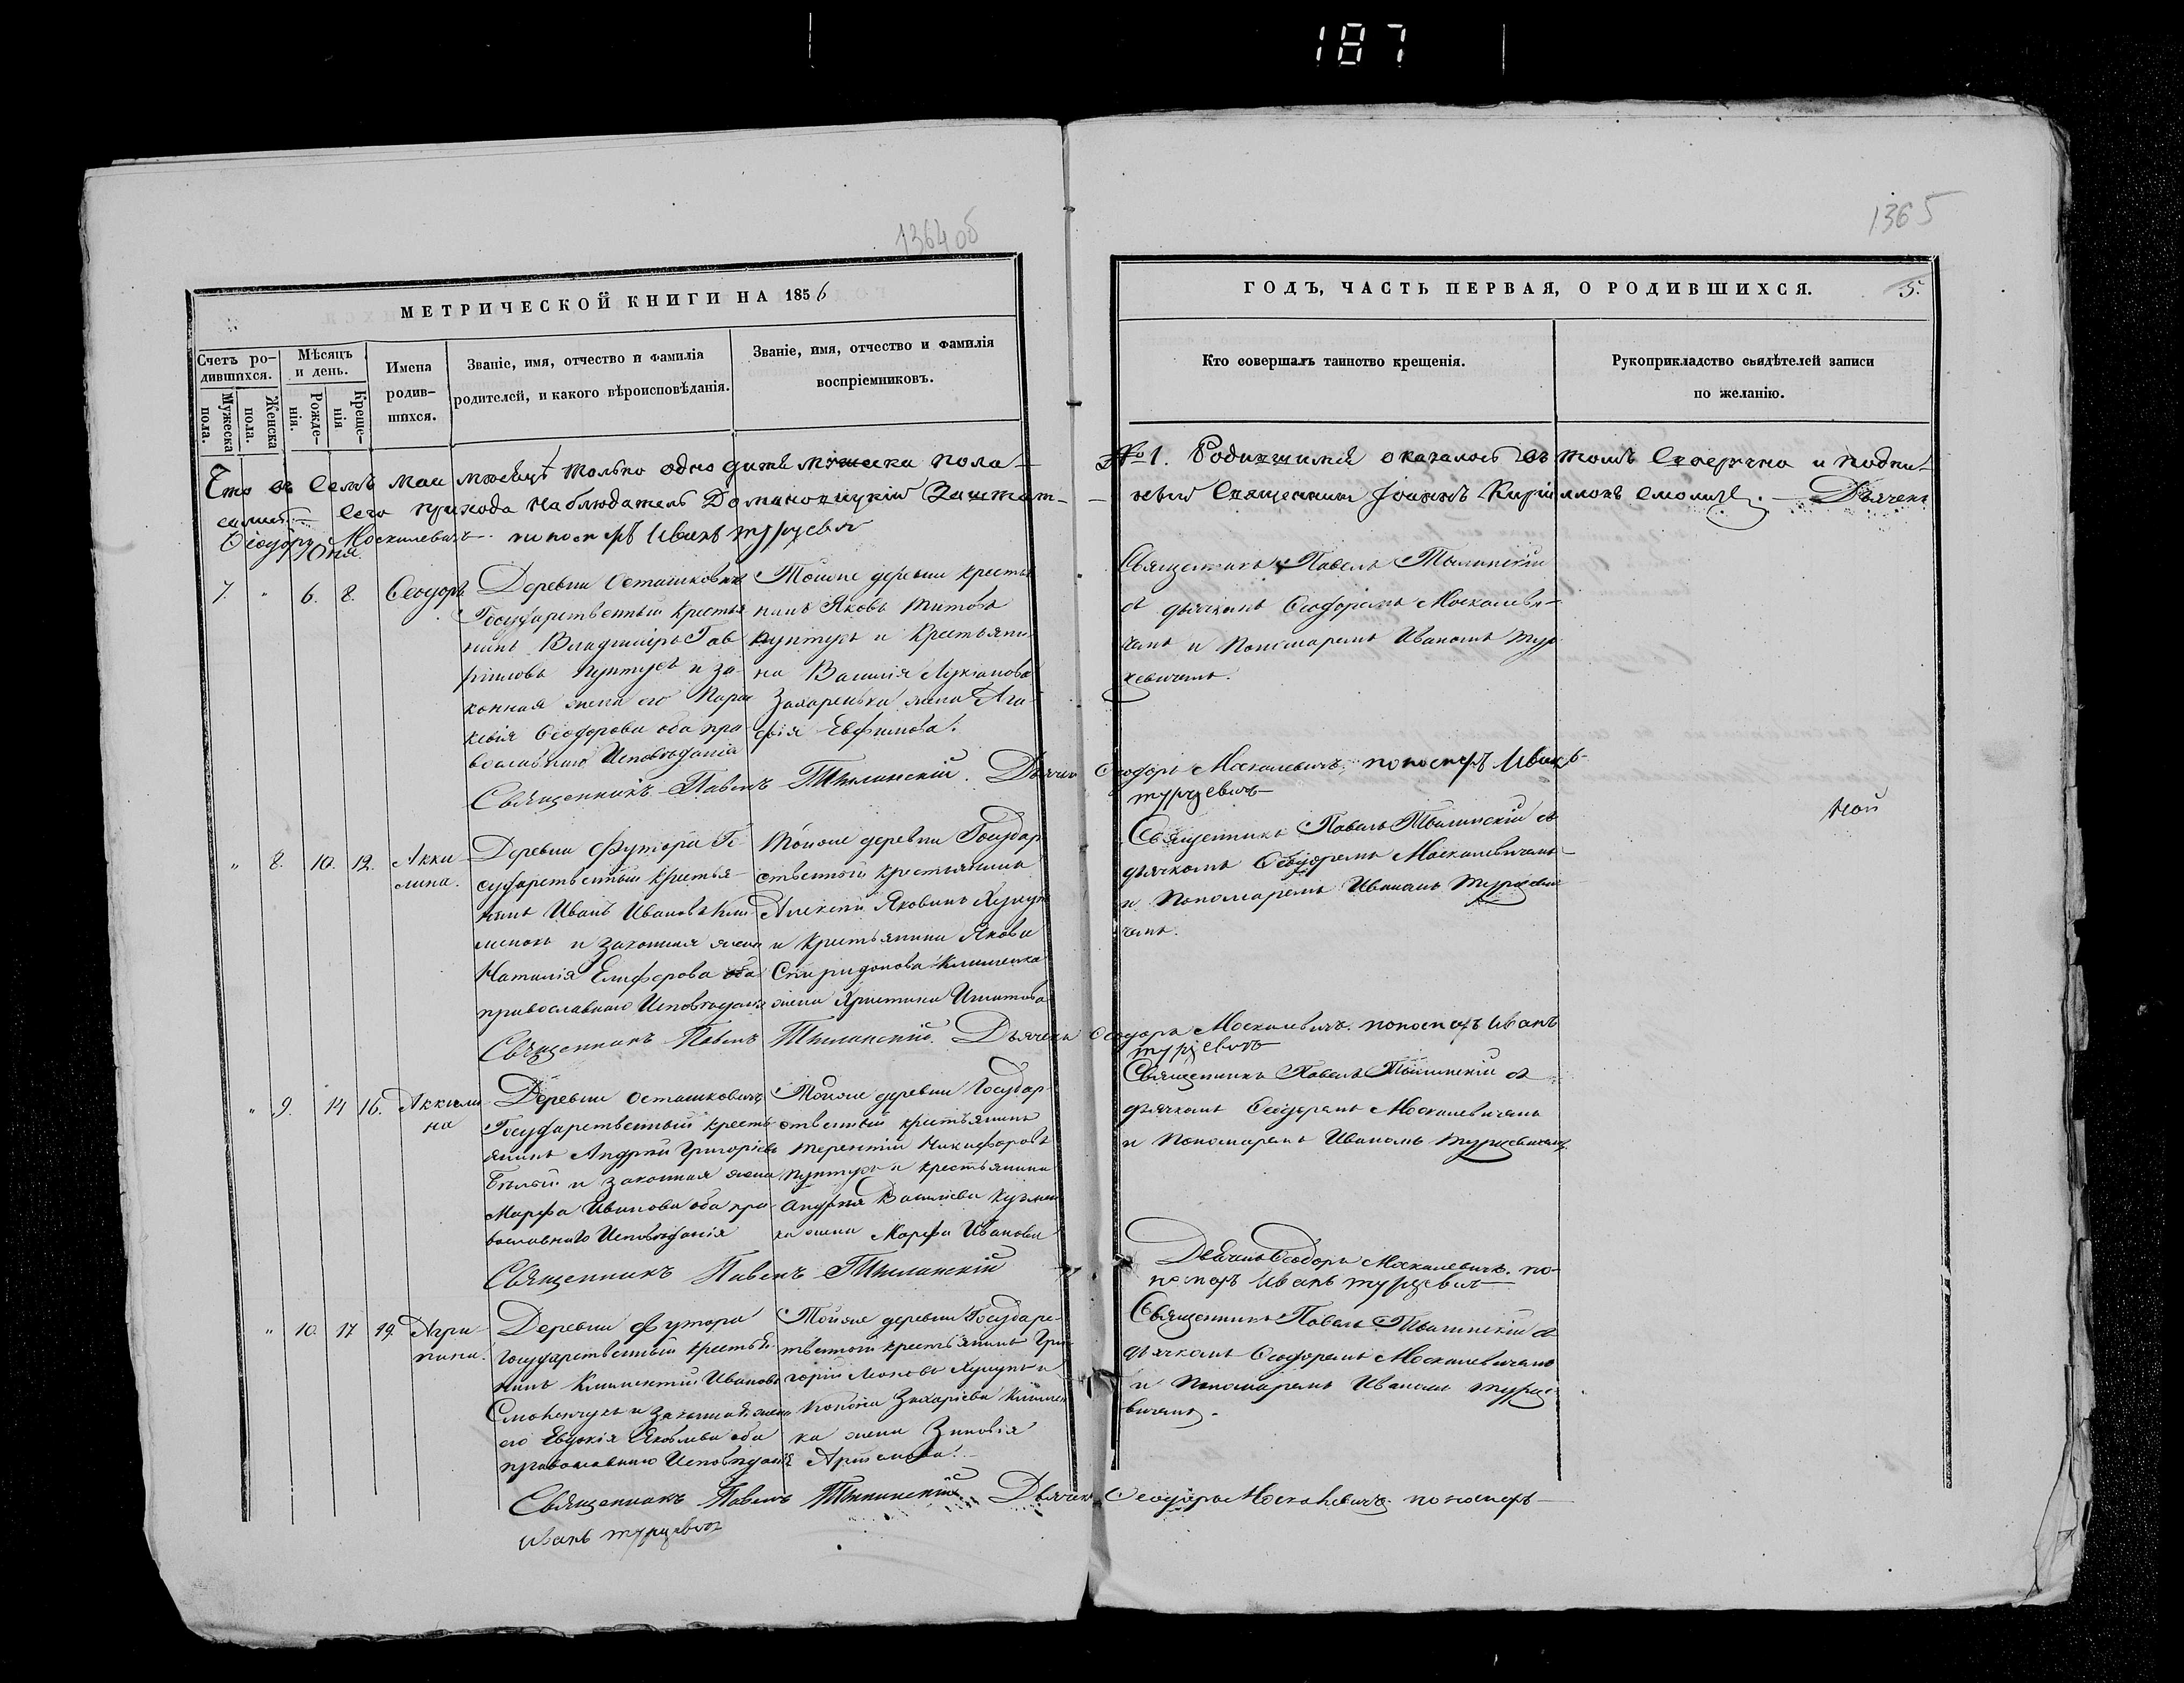 187
1364 об
1365
МЕТРИЧЕСКОЙ КНИГИ НА 1856
ГОДЪ, ЧАСТЬ ПЕРВАЯ, О РОДИВШИХСЯ.
5.
Счетъ ро-
дившихся.
Мужеска
пола.
Женска
пола.
Мѣсяцъ
и день.
Рожде-
нія.
Креще-
нія
Имена
родив-
шихся.
Званіе, имя, отчество и фамилія
родителей, и какого вѣроисповѣданія.
Званіе, имя, отчество и фамилія
воспріемниковъ.
Кто совершалъ таинство крещенія.
Рукоприкладство свидѣтелей записи
по желанію.
Что въ семъ маи мѣсяцѣ только одно дитя мужеска пола
№ 1. Родившимся оказалось въ томъ свѣрено и подпи-
сано сего прихода наблюдатель Домановицкій Заштат-
ный Священникъ Іоаннъ Смоличъ. Дьячекъ
Ѳеодоръ Москалевичъ пономаръ Иванъ Турцевичъ
Юня.
7. " 6. 8. Ѳеодоръ
Деревни Осташковичъ
Государственный крестья
нинъ Владимиръ Гав
риловъ Пунтусъ и за-
конная жена его Парас
кевія Ѳеодорова оба пра-
вославнаго Исповѣданія
Тойже деревни кресть
нинъ Яковъ Титовъ
Пунтусъ и крестьяни
на Василія Лукіанова
Захаренька жена Ага
фія Евфимова.
Священникъ Павелъ Тылинскій
съ дьячкомъ Ѳеодоромъ Москалеви-
чемъ и Пономаремъ Иваномъ Тур
цевичемъ.
Священникъ Павелъ Тылинскій. Дьячекъ Ѳеодоръ Москалевичъ, пономаръ Иванъ
Турцевичъ
ной
" 8. 10. 12. Акки-
лина.
Деревни Футора Го-
сударственный крестья-
нинъ Иванъ Ивановъ Кли
менокъ и законная жена
Наталія Елиферова оба
православнаго Исповѣданія
Тойже деревни Государ
ственный крестьянинъ
Алексѣй Яковинъ
и крестьянина Якова
Спиридонова Клименка
жена Христина Игнатова
Священникъ Павелъ Тылинскій съ
дьячкомъ Ѳеодоромъ Москалевичемъ
и Пономаремъ Иваномъ Турцеви
чемъ.
Священникъ Павелъ Тылинскій. Дьячекъ Ѳеодоръ Москалевичъ. пономаръ Иванъ
Турцевичъ
" 9. 14 16. Аккили
на
Деревни Осташковичъ
Государственный кресть
янинъ Андрей Григорьевъ
Бѣлый и законная жена
Марфа Иванова оба пра-
вославнаго Исповѣданія
Тойже деревни Государ
ственный крестьянинъ
Терентій Никифоровъ
Пунтусъ и крестьянина
Андрея Василіева Кузмен
ка жена Марфа Иванова
Священникъ Павелъ Тылинскій съ
дьячкомъ Ѳеодоромъ Москалевичемъ
и Пономаремъ Иваномъ Турцевичемъ
Священникъ Павелъ Тылинскій
Дьячекъ Ѳеодоръ Москалевичъ. по-
номаръ Иванъ Турцевичъ
" 10. 17 19. Агри-
пина.
Деревни Футора
Государственный крестья
нинъ Климентій Ивановъ
Смоленчукъ и законная жена
его Евдокія Яковлева оба
православнаго Исповѣданія
Тойже деревни Государ-
твенный крестьянинъ Гри-
горій и
Захаріева Климен
ка жена Зиновія
Артемова.
Священникъ Павелъ Тылинскій съ
дьячкомъ Ѳеодоромъ Москалевичемъ
и Пономаремъ Иваномъ Турце-
вичемъ.
Священникъ Павелъ Тылинскій. Дьячекъ Ѳеодоръ Москалевичъ. пономаръ
Иванъ Турцевичъ